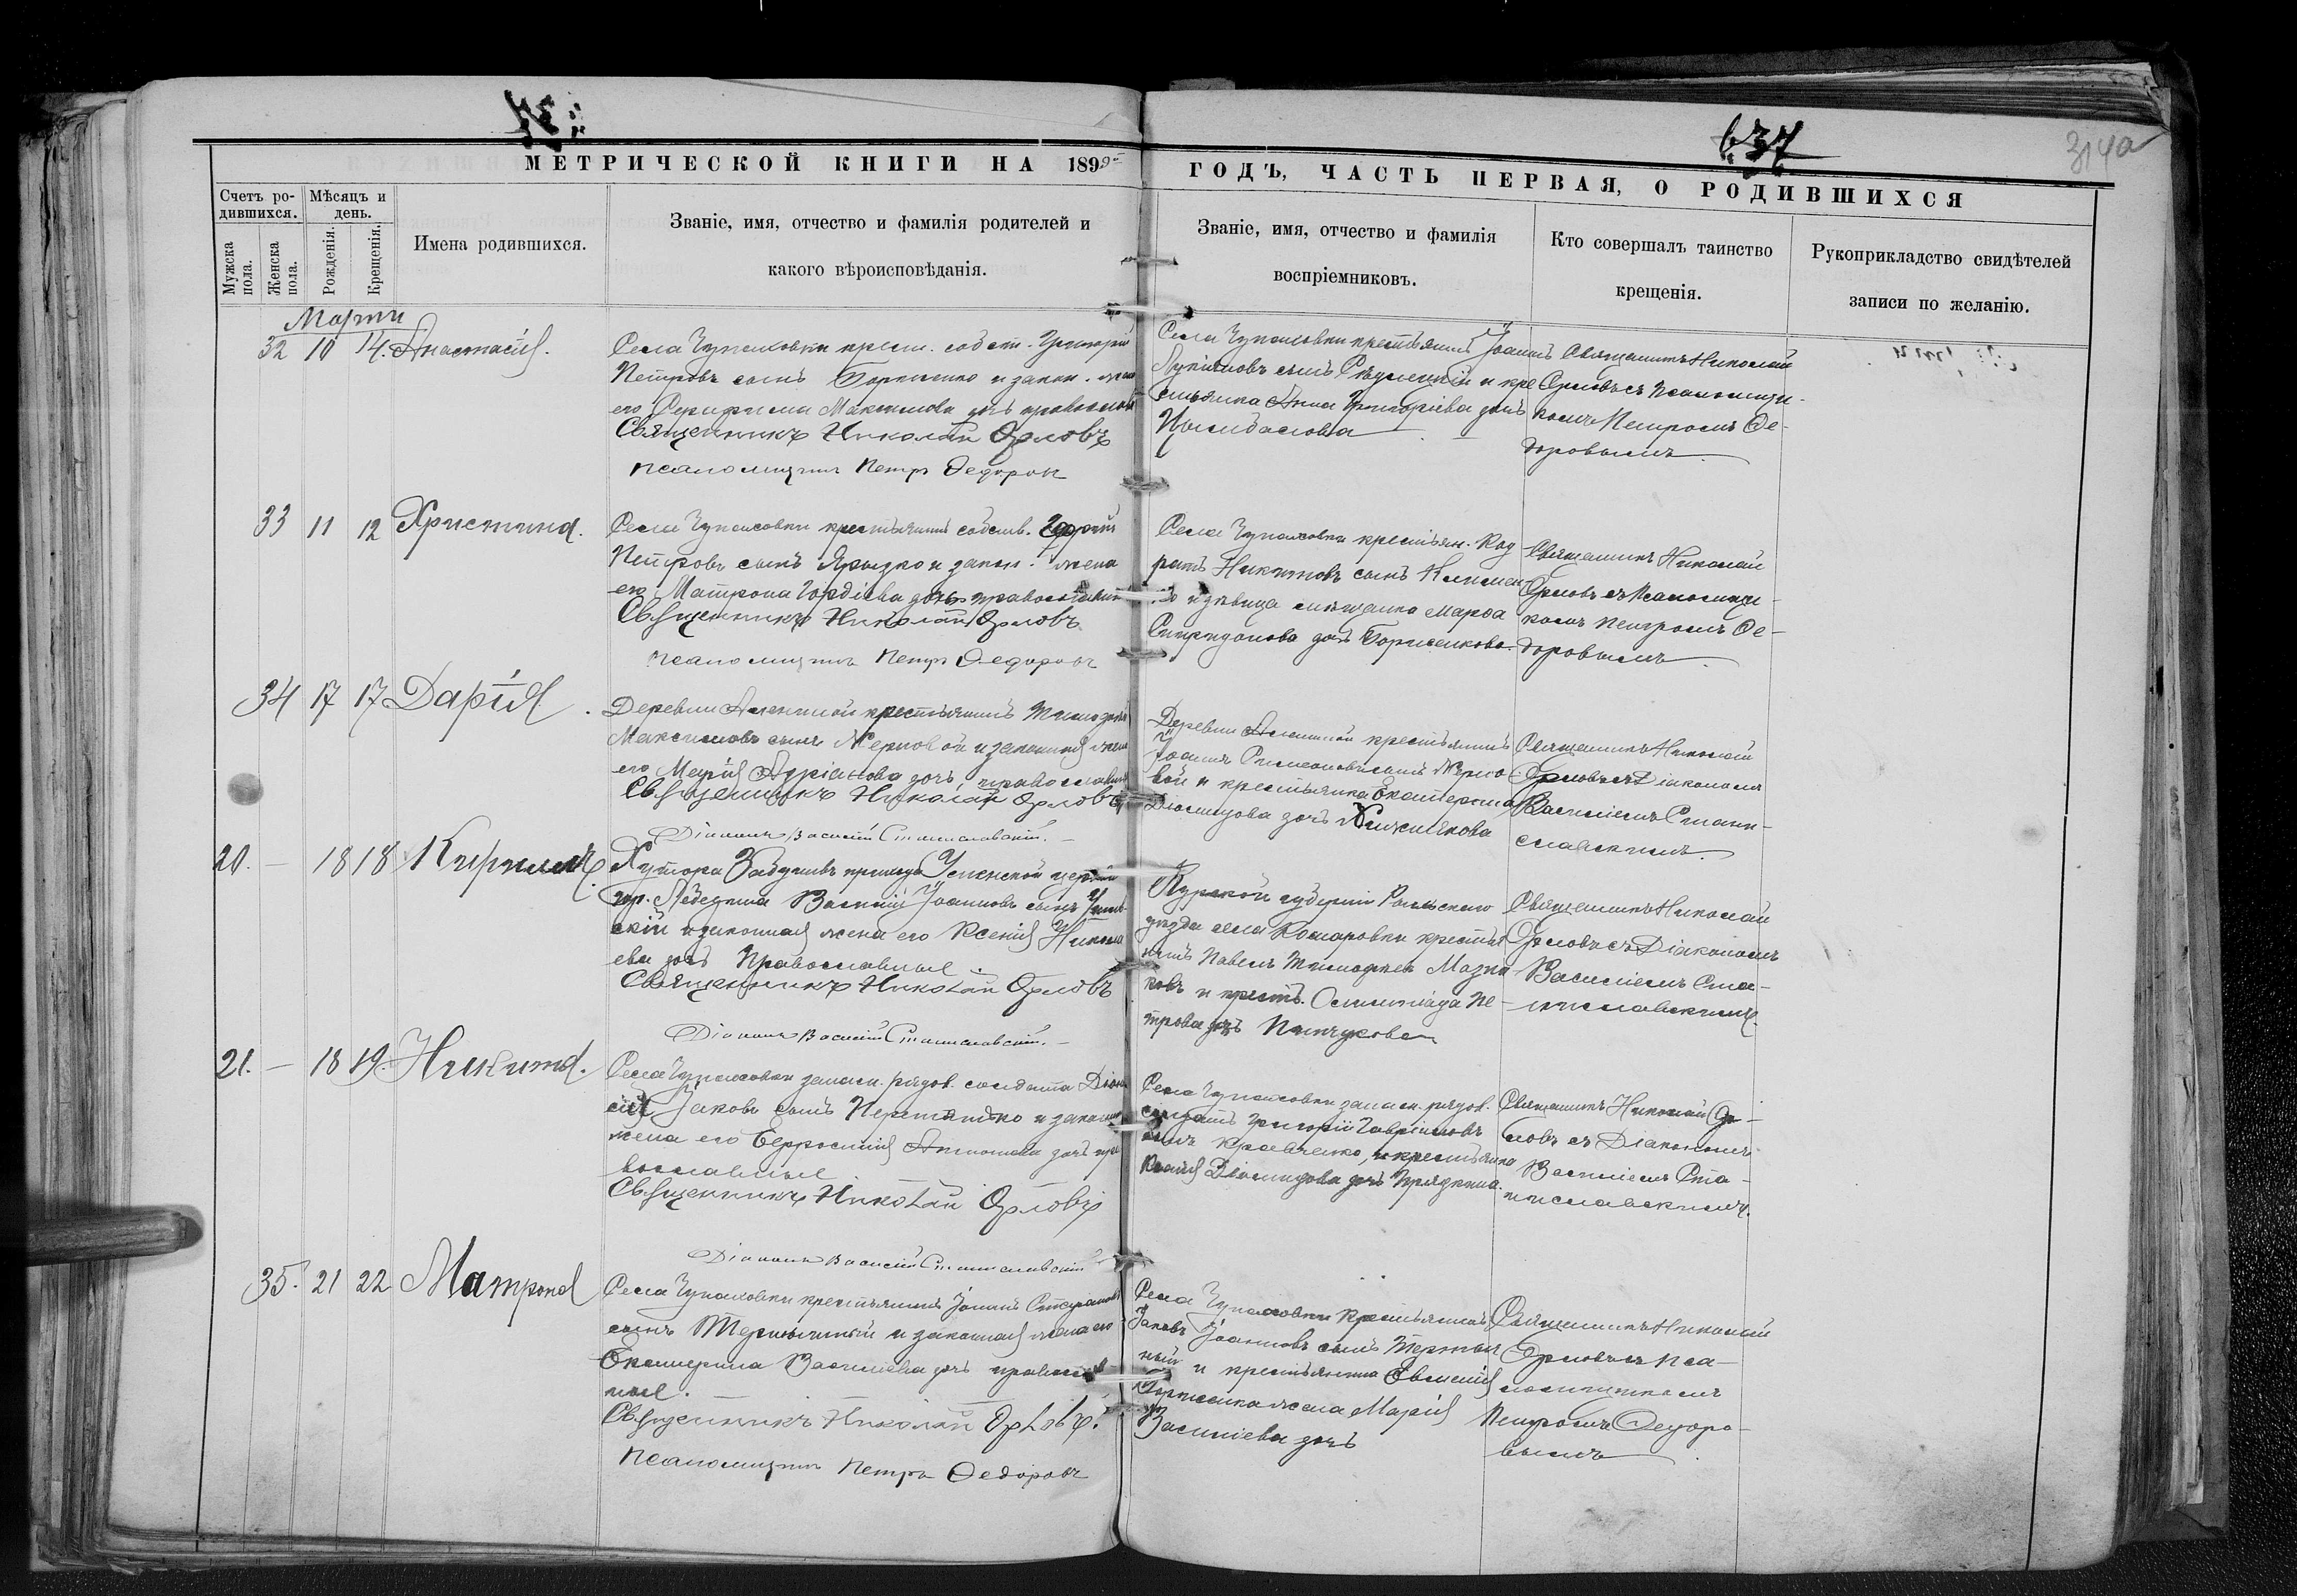 637
314а
МЕТРИЧЕСКОЙ КНИГИ НА 1899
ГОДЪ, ЧАСТЬ ПЕРВАЯ, О РОДИВШИХСЯ
Счетъ родившихся.
Мѣсяцъ и день.
Мужска пола.
Женска пола.
Рожденія.
Крещенія.
Имена родившихся.
Званіе, имя, отчество и фамилія родителей и
какого вѣроисповѣданія.
Званіе, имя, отчество и фамилія
воспріемниковъ.
Кто совершалъ таинство
крещенія.
Рукоприкладство свидѣтелей
записи по желанію.
Мартъ
32 10 14. Анастасія.
Села Чупаховки крест. собст. Григорій
Петровъ сынъ и закон. жена
его Серафима Максимова дочь православн
Священникъ Николай Орловъ
псаломщикъ Петръ Федоров
Села Чупаховки крестьянинъ Іоаннъ
сынъ и кре
стьянка Анна Григоріева дочь
Цымбалова
Священникъ Николай
Орловъ съ псаломщи-
комъ Петромъ Ѳе-
доровымъ.
33 11 12 Христина.
Села Чупаховки крестьянинъ собств.
Петровъ сынъ Ярызко и закон. жена
его Матрона Гордіева дочь православн
Священникъ Николай Орловъ
псаломщикъ Петръ Федоровъ
Села Чупаховки крестьян. Код
ратъ Никитовъ сынъ Клименк
о и дѣвица мѣщанка Марѳа
Спиридонова дочь Борисенкова.
Священникъ Николай
Орловъ съ псаломщи-
комъ Петромъ Ѳе-
доровымъ.
34 17 17 Дарія.
Деревни крестьянинъ Тимоѳей
Максимовъ сынъ Жерновой и законная жена
его Марія Адріанова дочь православн
Священникъ Николай Орловъ
Діаконъ Василій Станиславскій.
Деревни крестьянинъ
Іоаннъ Симеоновъ сынъ Жерно-
вой и крестьянка Екатерина
Діомидова дочь
Священникъ Николай
Орловъ съ Діакономъ
Василіемъ Стани-
славскимъ.
20. — 18 18 Кириллъ.
Хутора прихода Успенской церкви
гр. Лебедина Василій Іоанновъ сынъ
скій и законная жена его Ксенія Никола
ева дочь Православные.
Священникъ Николай Орловъ
Діаконъ Василій Станиславскій.
Курской губерніи Рыльскаго
уѣзда села Комаровки крестья
нинъ Павелъ Тимоѳеев
и крест. Олимпіада Пе-
трова дочь
Священникъ Николай
Орловъ съ Діакономъ
Василіемъ Ста-
ниславскимъ.
21. — 18 19. Никита.
Села Чупаховки запасн. рядов. солдата Діони
сій Іаковъ сынъ и законная
жена его Евфросинія дочь пра
вославные
Священникъ Николай Орловъ
Діаконъ Василій Станиславскій
Села Чупаховки запасн. рядов.
солдатъ Григорій Гавріиловъ
сынъ Кравченко, и крестьянка
Діомидова дочь
Священникъ Николай Ор-
ловъ съ Діакономъ
Василіемъ Ста-
ниславскимъ.
35. 21 22 Матрона
Села Чупаховки крестьянинъ Іоаннъ Стефановъ
сынъ Тертычный и законная жена его
Екатерина Василіева дочь православ
ные.
Священникъ Николай Орловъ.
псаломщикъ Петръ Федоровъ
Села Чупаховки крестьянинъ
Іаковъ Іоанновъ сынъ Тертыч
ный и крестьянина Евменія
жена Марія
Василіева дочь
Священникъ Николай
Орловъ съ пса-
ломщикомъ
Петромъ Ѳедоро-
вымъ.